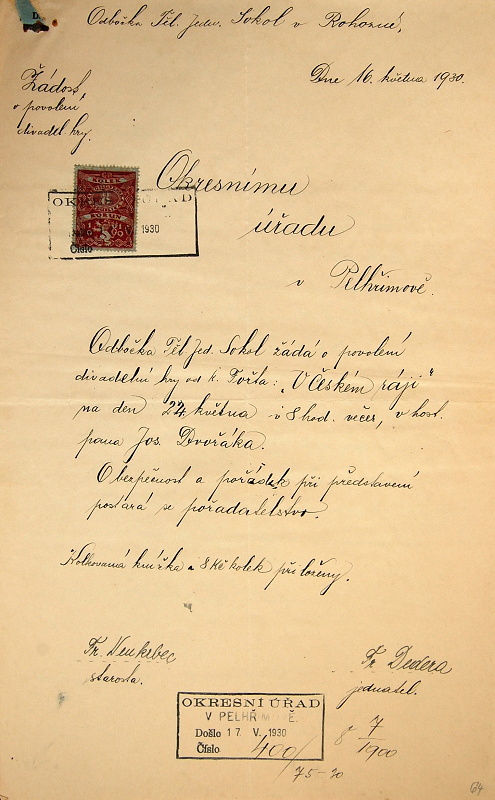 Odbočka Těl. Jedn. Sokol v Rohozné,
Dne 16. května 1930.
Žádost,
o povolení
divadel. hry.
KOLEK
5
KORUN
OKRESNÍ ÚŘAD
1930
Číslo
Okresnímu
úřadu
v Pelhřimově.
Odbočka Těl. Jed. Sokol žádá o povolení
divadelní hry od : „V Českém ráji"
na den 24 května v 8 hod. večer, v host.
pana Jos. Dvořáka.
O bezpečnost a pořádek při představení
postará se pořadatelstvo.
Kolkovaná knížka a 8 Kč kolek přiloženy.
Fr.
starosta.
Fr.
jednatel.
OKRESNÍ ÚŘAD
V PELHŘIMOVĚ.
Došlo 17. V. 1930
Číslo 400/
8 7/1900
75-30
64